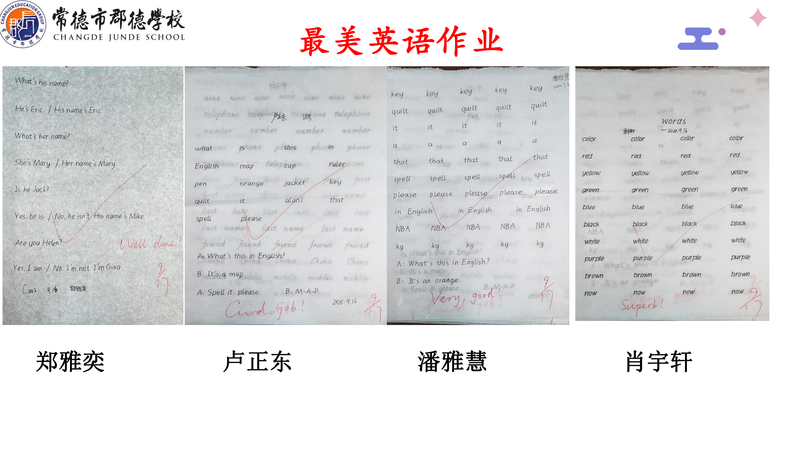 常德市郡德學校
CHANGDE JUNDE SCHOOL
最美英语作业
What's his name?
He's Eric / His name's Eric
What's her name?
She's Mary / Her name's Mary
Is he Jack?
Yes, he is / No, he isn't. His name's Mike
Are you Helen?
Well done!
Yes, I am / No I'm not I'm Gina
what pen phone this in
English map cup ruler
pen orange jacket key
quilt it a(an) that
spell please
A: What's this in English?
B: It's a map
A: Spell it please. B: M-A-P.
2021.9.16
Good job!
key key key key key
quilt quilt quilt quilt quilt
it it it it it
a a a a a
that that that that that
spell spell spell spell spell
please please please please please
in English in English in English
NBA NBA NBA NBA NBA
kg kg kg kg kg
A: What's this in English?
B: It's an orange.
Very good!
words
2021.9.16
color color color color
red red red red
yellow yellow yellow yellow
green green green green
blue blue blue blue
black black black black
white white white white
purple purple purple purple
brown brown brown brown
now now now now
Superb!
郑雅奕
卢正东
潘雅慧
肖宇轩